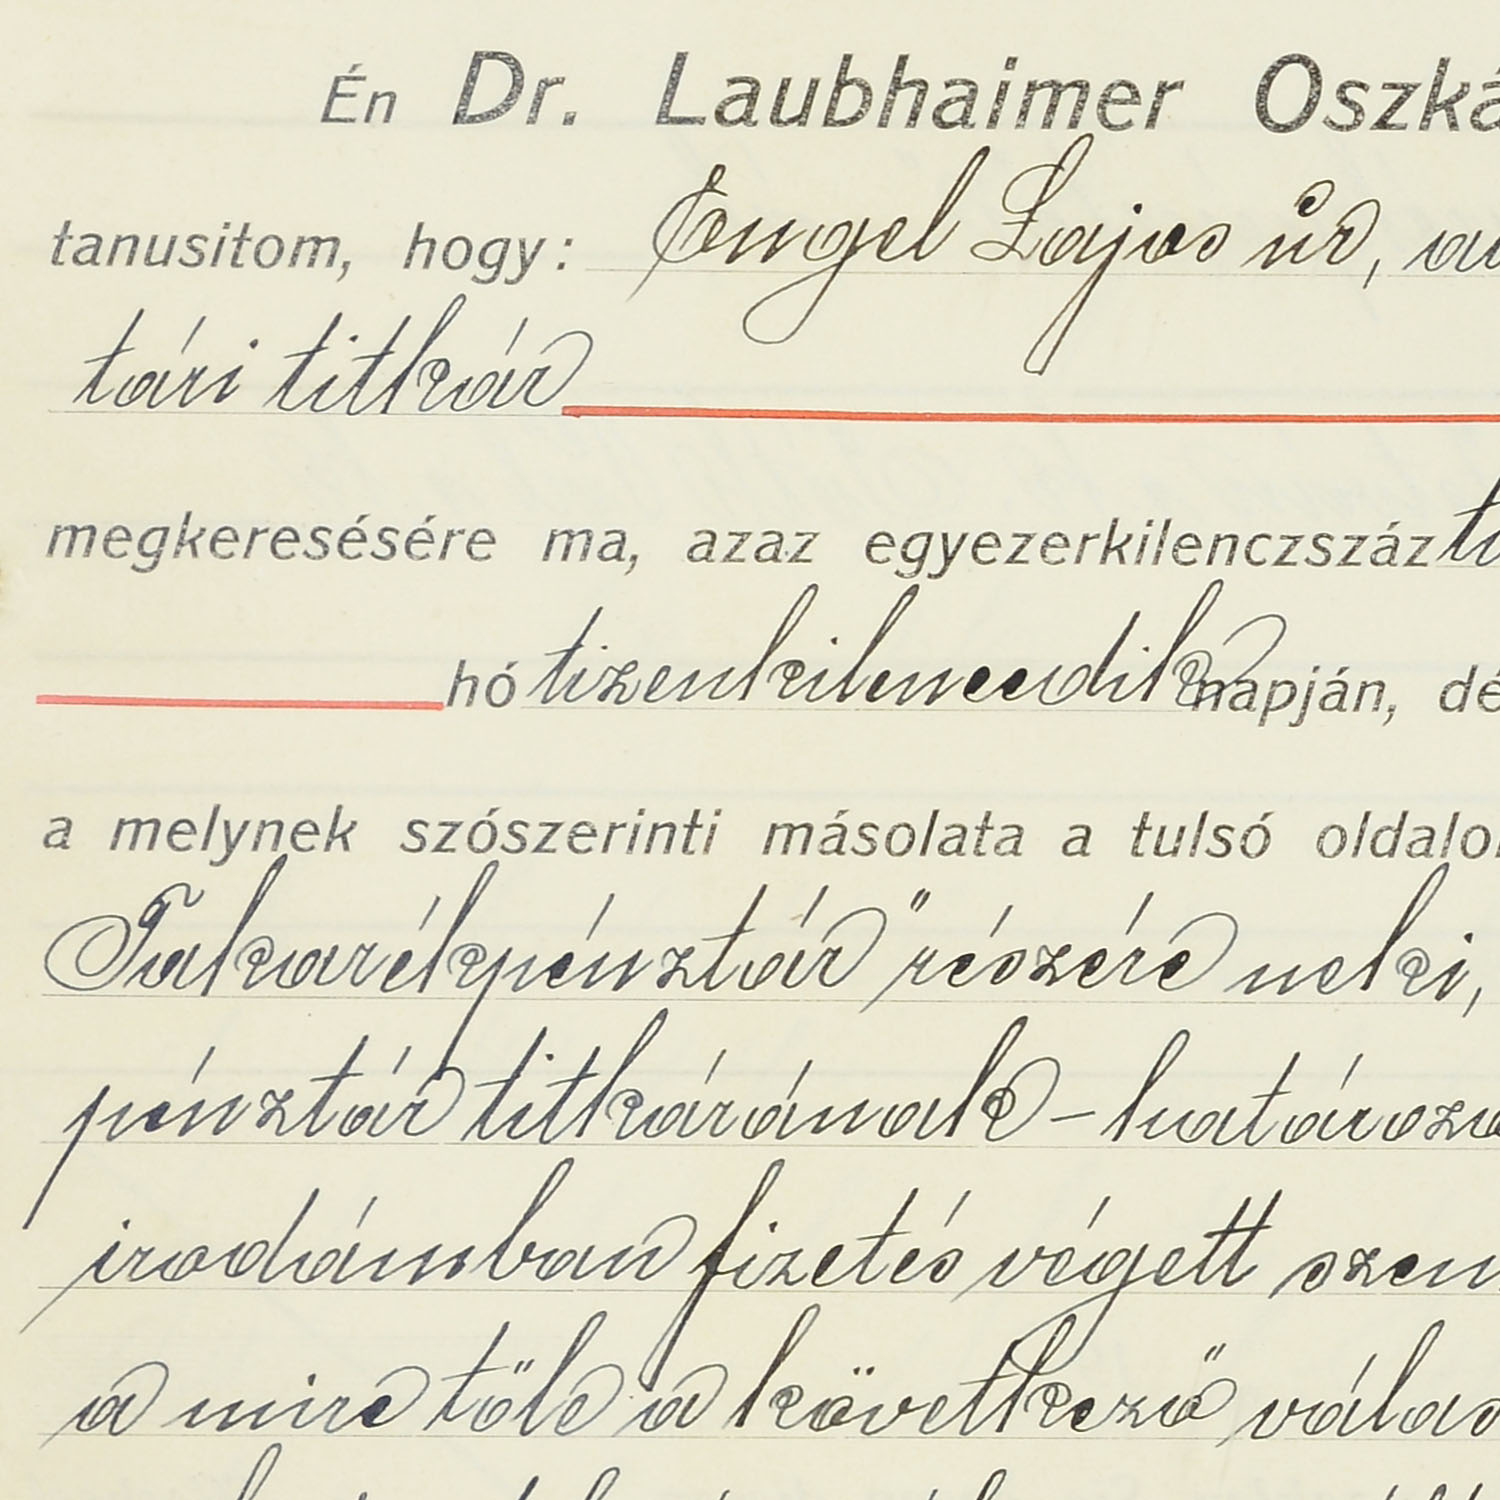 Én Dr. Laubhaimer Oszká
tanusitom, hogy: Engel Lajos úr, a
tári titkár
megkeresésére ma, azaz egyezerkilenczszáz ti
hó tizenkilenczedik napján, dé
a melynek szószerinti másolata a tulsó oldalo
Takarékpénztár" részére neki,
pénztár titkárának - határoza
irodámban fizetés végett szem
a mire tőle a következő válas